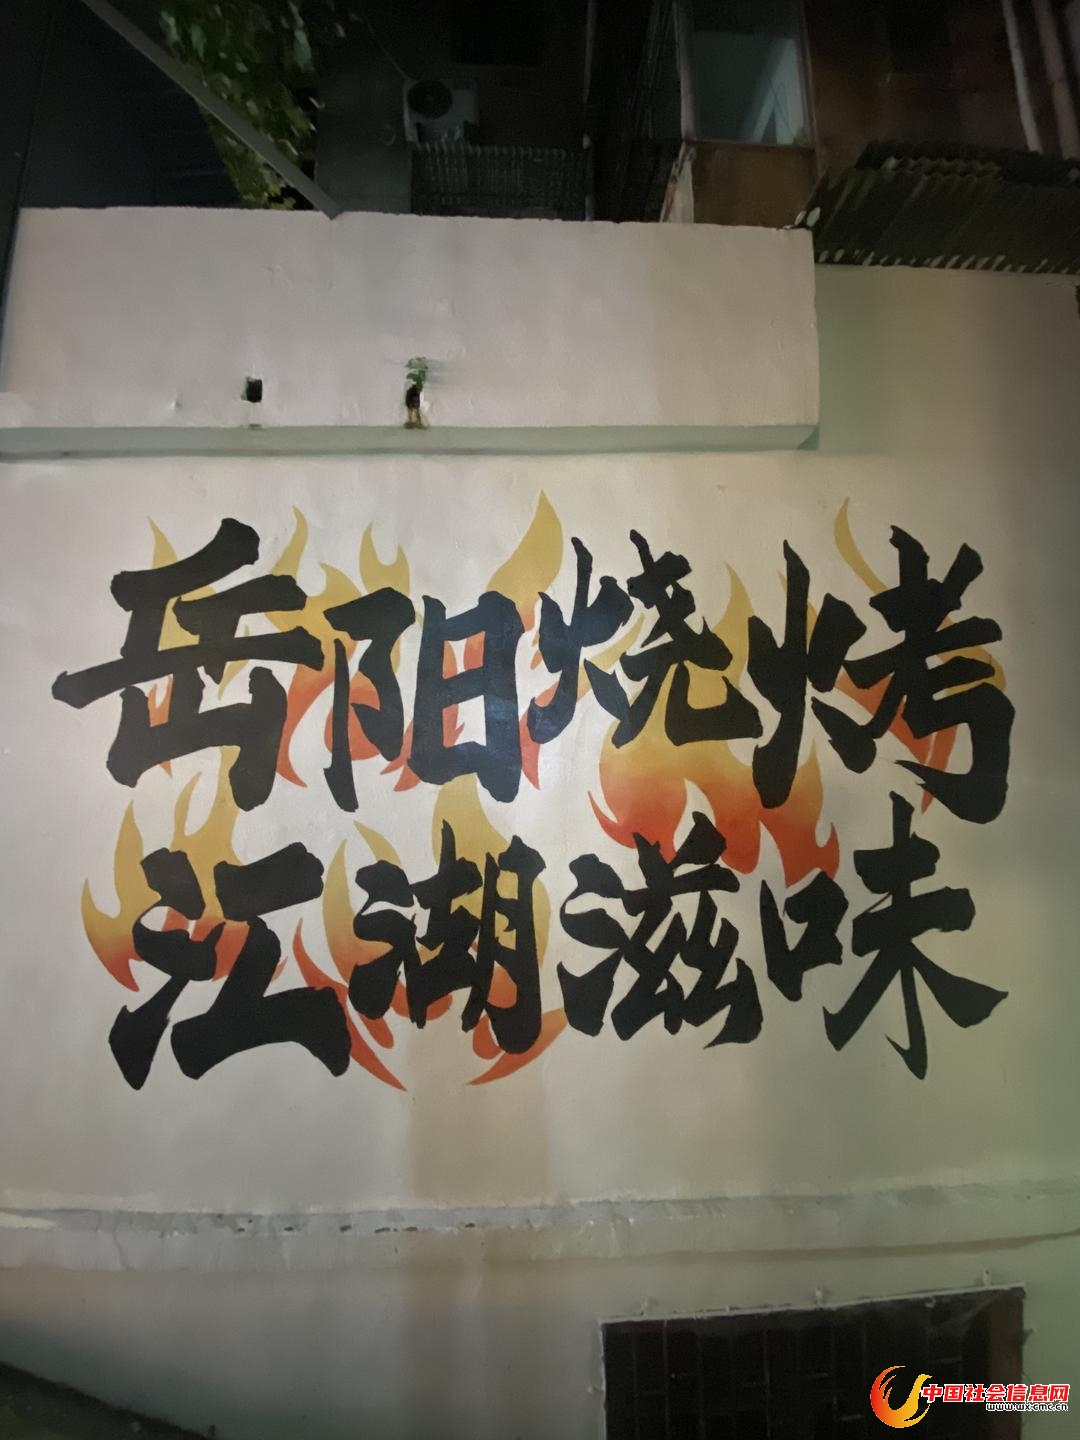 岳阳烧烤
江湖滋味
中国社会信息网
www.wx.cmc.cn